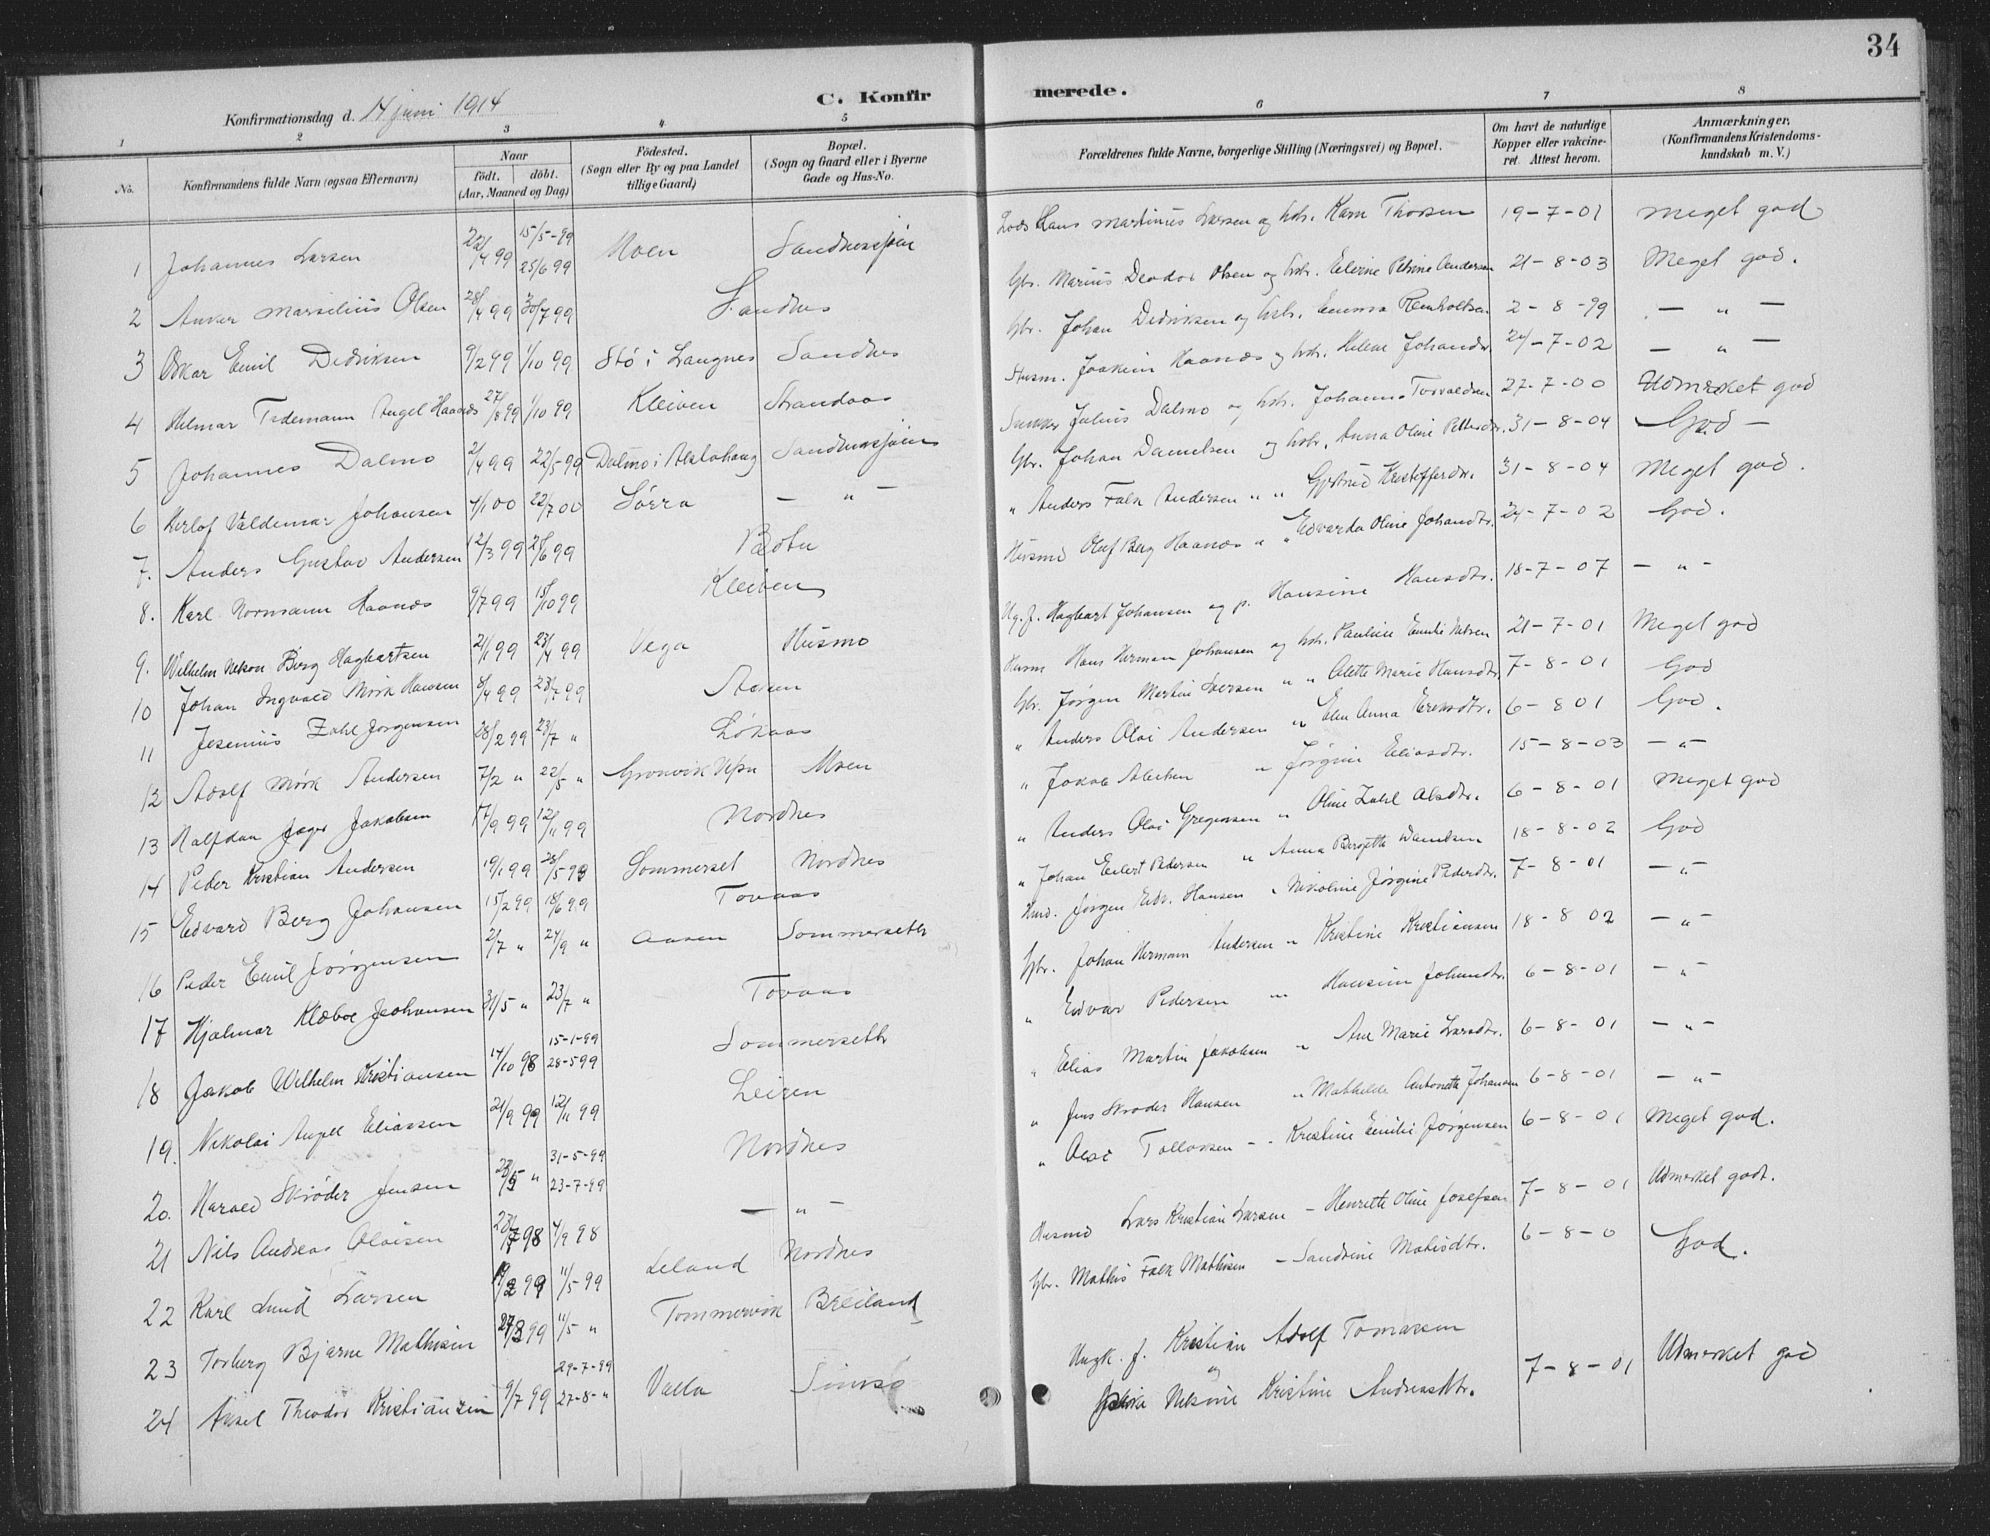 34
C. Konfir merede.
Konfirmationsdag d. 14 juni 1914
1 2 3 4 5 6 7 8
No. Konfirmandens fulde Navn (ogsaa Efternavn) Naar født. døbt. (Aar, Maaned og Dag) Fødested. (Sogn eller By og paa Landet tillige Gaard) Bopæl. (Sogn og Gaard eller i Byerne Gade og Hus-No. Forældrenes fulde Navne, borgerlige Stilling (Næringsvei) og Bopæl. Om havt de naturlige Kopper eller vakcineret. Attest herom. Anmærkninger. (Konfirmandens Kristendomskundskab m. V.)
1 Johannes Larsen 22/4 99 15/5-99 25/6 99 Moen Sandnessjøen Lods Hans Martinus Larsen og hstr. Karn Thorsen 19-7-01 Meget god
2 Anker Marselius Olsen 28/4 99 30/7 99 Sandnes Gbr. Marius Deodor Olsen og hstr. Elerine Petrine Andersen 21-8-03 Meget god.
3 Oskar Emil Dedriksen 9/2 99 1/10 99 Stø i Langnes Sandnes Gbr. Johan Dedriksen og hstr. Emma Renholtsen 2-8-99 - " -
4 Helmar Tidemann Angel Haanæs 27/8 99 1/10 99 Kleiven Strandaas Husm. Joakim Haanæs og hstr. Helene Johansdr. 24-7-02 - " -
5 Johannes Dalmo 2/4 99 22/5-99 Dalmo i Alstahaug Sandnessjøen Julius Dalmo og hstr. Johanna Torvaldsen 27-7-00 Udmerket god
6 Herlof Valdemar Johansen 4/1 00 22/7 00 Sørra - " - Gbr. Johan Danielsen og hstr. Anna Oline Pettersdr. 31-8-04 God -
7. Anders Gustav Andersen 12/3 99 25/6 99 Botn " Anders Falk Andersen " " Gjertrud Kristoffersdr. 31-8-04 Meget god.
8. Karl Normann Haanæs 9/7 99 15/10 99 Kleiven Husmd Oluf Berg Haanæs " " Edvarda Oline Johansdtr. 24-7-02 God.
9. Wilhelm Nikon Berg Hagbartsen 21/1 99 23/4 99 Vega Husmo Ug. f. Hagbart Johansen og p. Hansine Hansdtr. 18-7-07 - " -
10 Johan Ingvald Mørk Hansen 8/4 99 23/7 99 Aasen Husm Hans Herman Johansen og hstr. Pauline Emilie Nilsen 21-7-01 Meget god
11 Jesenius Zahl Jørgensen 26/2 99 23/7 " Løkaas Gbr. Jørgen Martin Iversen " " Alette Marie Hansdtr 7-8-01 God
12 Adolf Mørk Andersen 7/2 " 22/5 " Gronvik Vefsn Moen " Anders Olai Andersen " Elen Anna Eriksdtr. 6-8 01 God.
13 Halfdan Jæger Jakobsen 17/9 99 12/11 99 Nordnes " Jakob Albertsen " Jørgine Eliasdtr. 15-8-03 - " -
14 Peder Kristian Andersen 19/1 99 28/5-99 Sommerset Nordnes " Anders Olai Gregersen " Oline Zahl Olsdtr. 6-8-01 Meget god
15 Edvard Berg Johansen 15/2 99 18/6 99 Tovaas " Johan Eilert Pedersen " Anna Bergette Danielsen 18-8-02 God
16 Peder Emil Jørgensen 2/7 " 24/9 " Aasen Sommersettr Husd. Jørgen Edv. Hansen " Nikoline Jørgine Pedersdtr. 7-8-01 - " -
17 Hjalmar Klæboe Jeohansen 31/5 " 23/7 " Tovaas Gbr. Johan Hermann Andersen " Kristine Kristiansen 18-8 02 - " -
18 Jakob Wilhelm Kristiansen 14/10 98 15-1-99 28-5 99 Sommersettr " Edvar Pedersen " Hansine Johansdtr. 6-8-01 - " -
19. Nikolai Angell Eliassen 21/9 99 12/11 99 Leiren " Elias Martin Jakobsen " Ane Marie Larsdtr. 6-8-01 - " -
20. Harald Skrøder Jensen 28/5 " 31-5-99 23-7-99 Nordnes " Jens Skroder Hansen " Mathilde Antonette Johansen 6-8-01 - " -
21 Nils Andreas Olaisen 23/7 98 4/9 98 - " - " Olai Tollevsen - - Kristine Emilie Jørgensen 6-8-01 Meget god.
22 Karl Lund Larsen 19/2 99 11/5-99 Leland Nordnes Husmd Lars Kristian Larsen - Henrette Oline Josefsen 7-8-01 Udmerket godt.
23 Torberg Bjarne Mathisen 27/3 99 11/5 " Tommervik Breiland Gbr. Mathis Falk Mathisen - Sandrine Matisdtr. 6-8-0 God.
24 Aksel Theodor Kristiansen 9/7 99 29-7-99 27-8-" Valla Simsø Ungk. f. Kristian Adolf Tomassen og Nilsine Kristine Andreasdtr. 7-8-01 Udmerket god